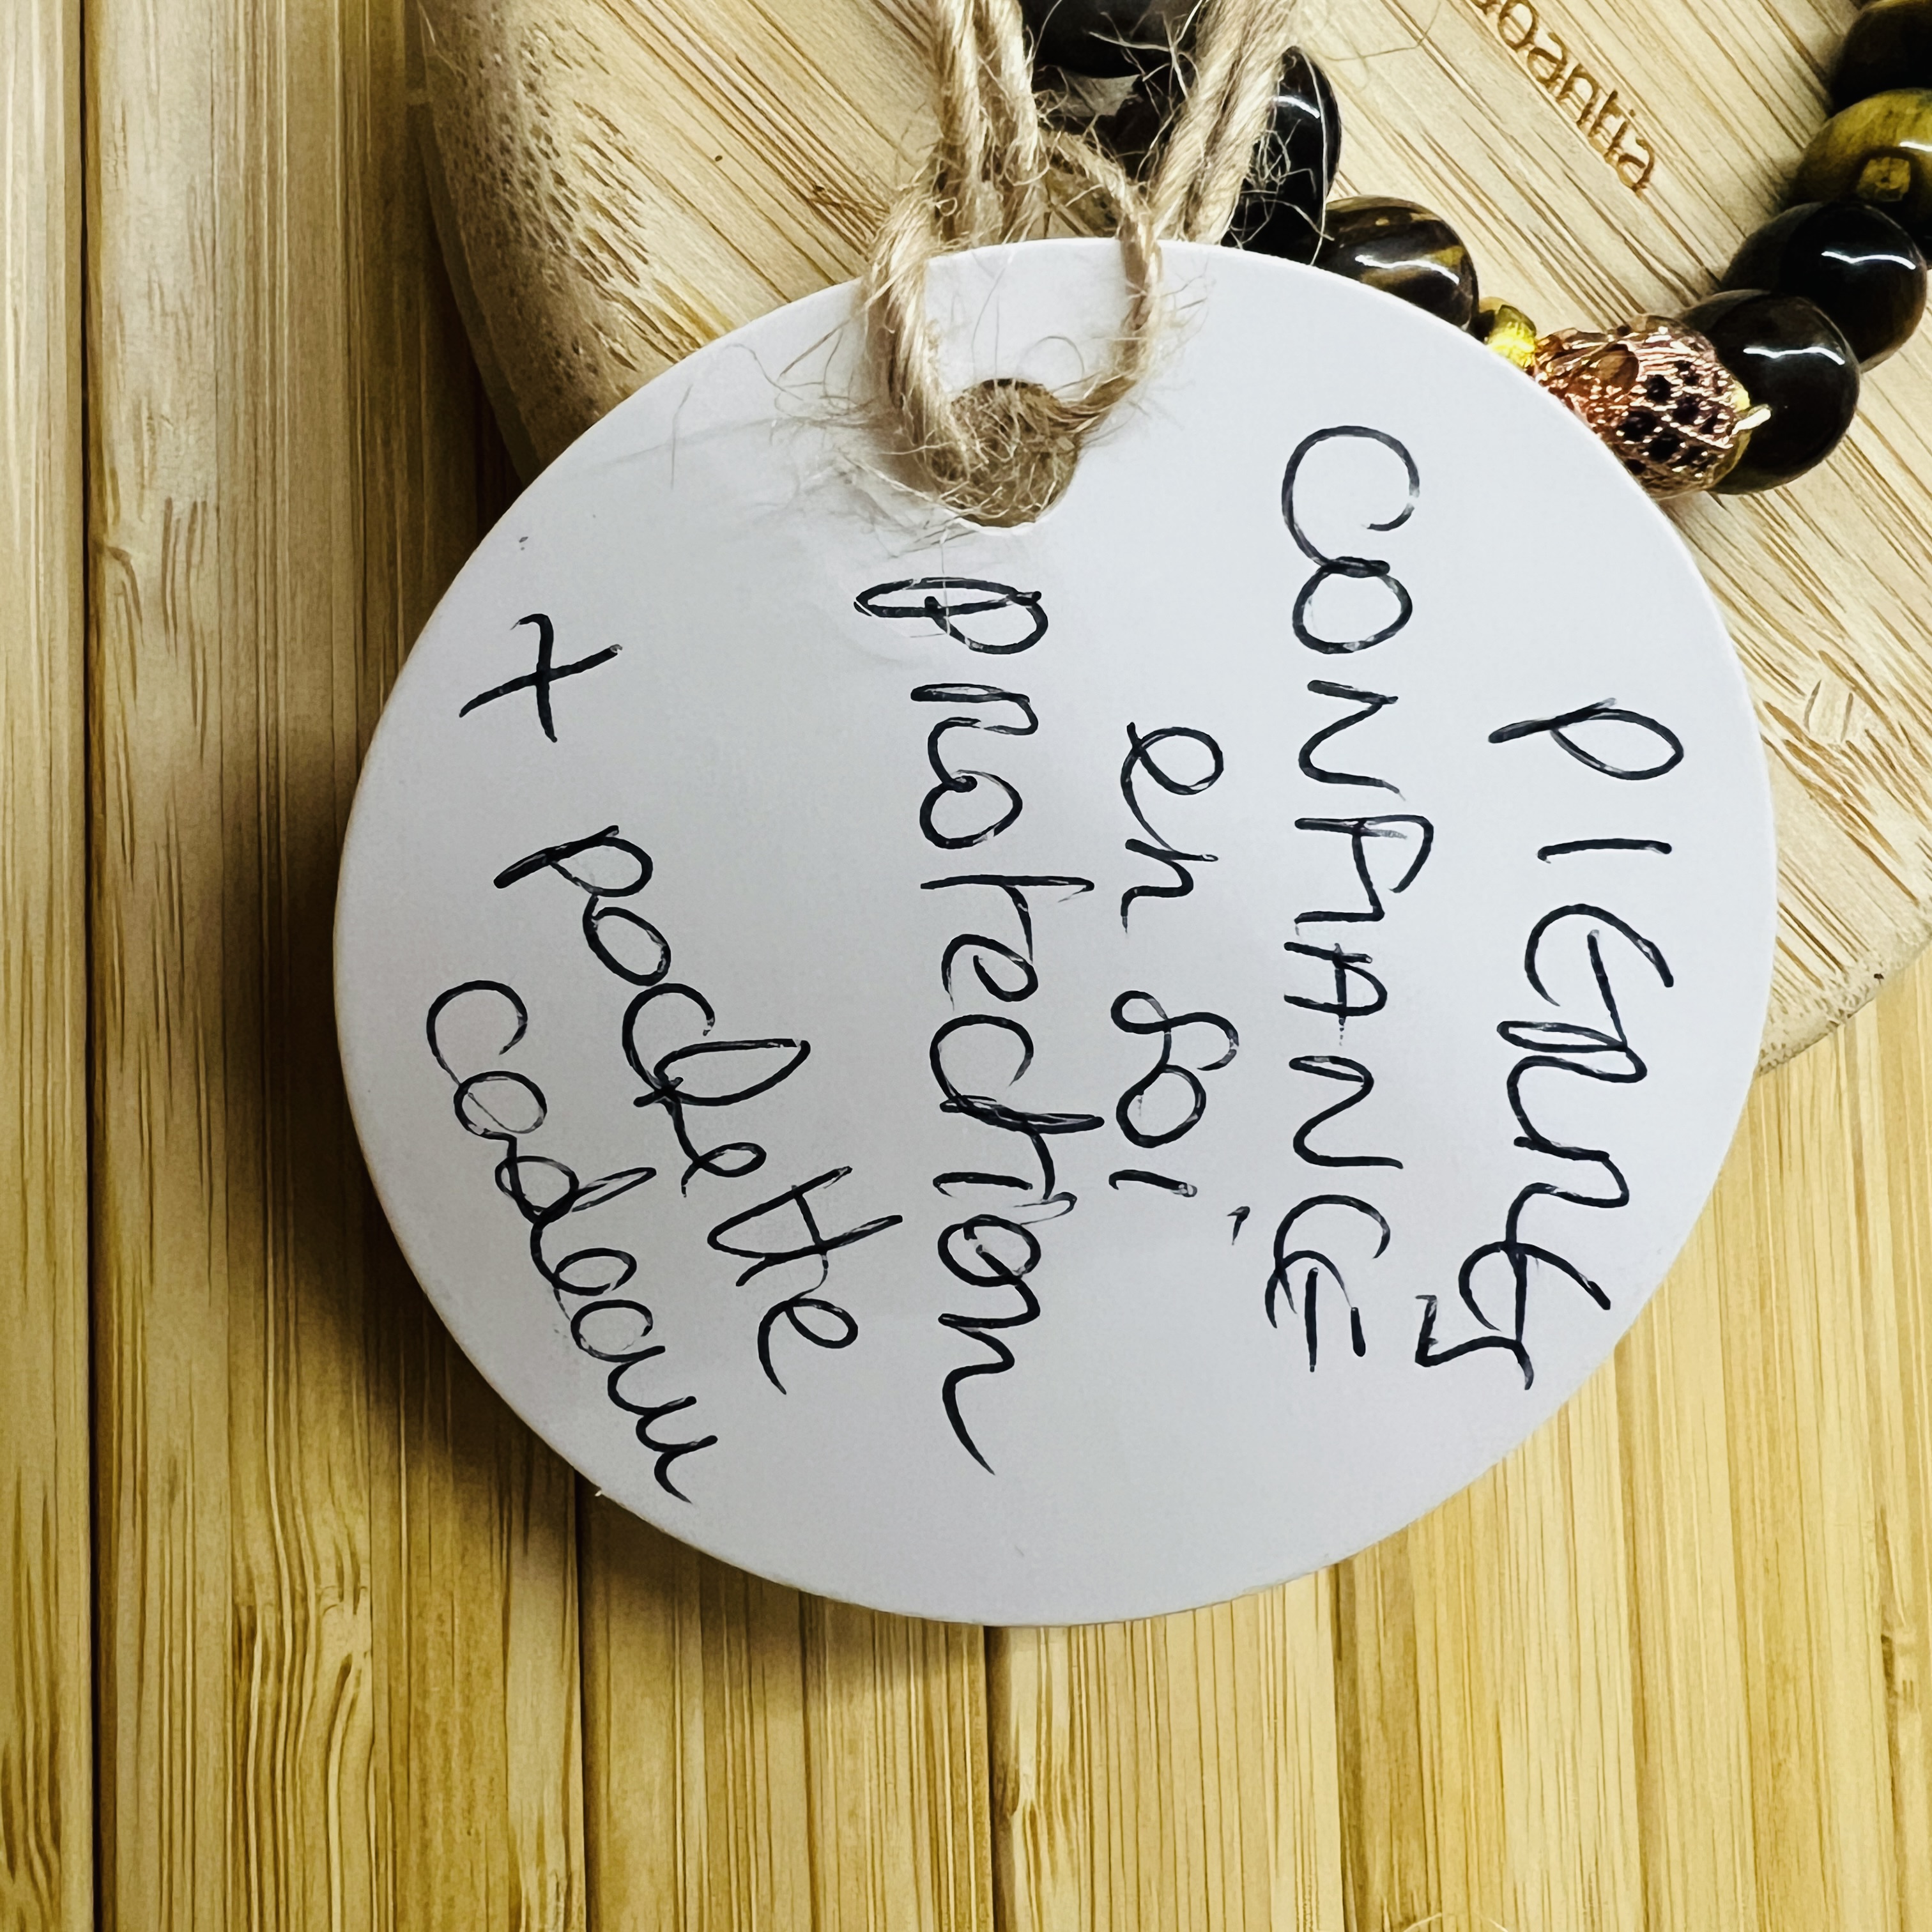 PIERRES
CONFIANCE
en soi,
protection
+ pochette
cadeau